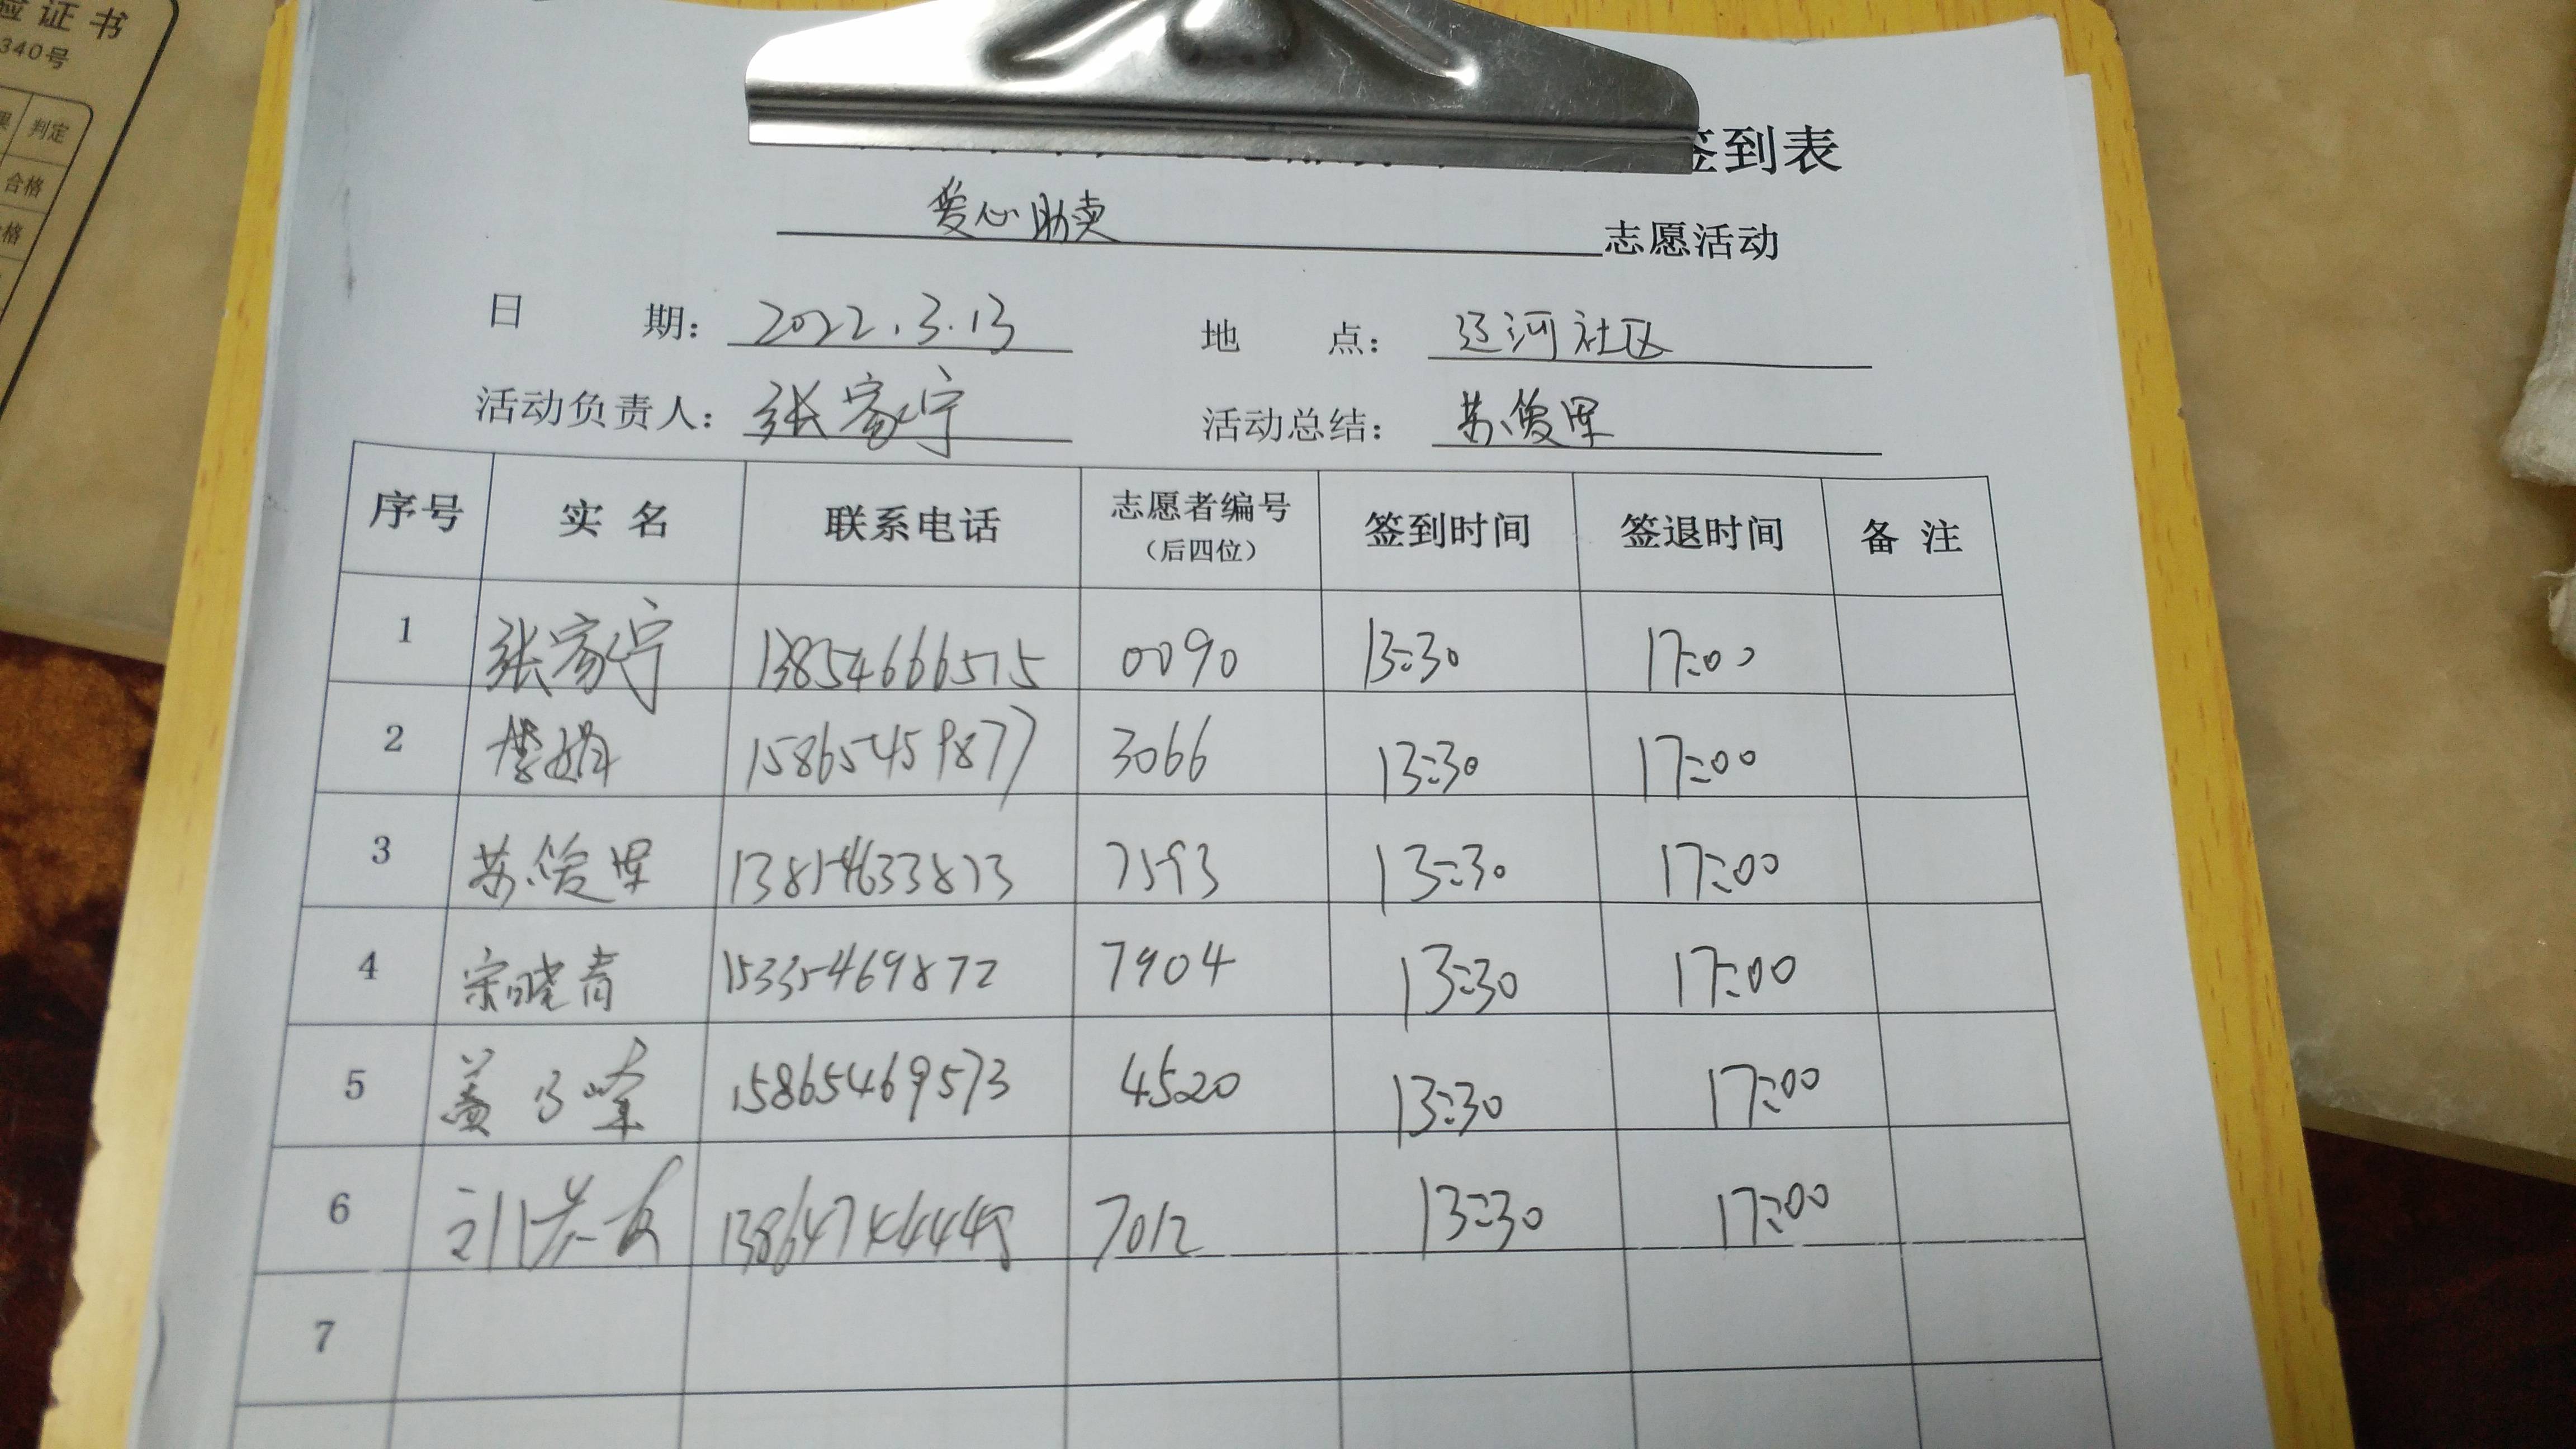 验证书
340号
果 判定
合格
格
签到表
爱心助卖 志愿活动
日 期: 2022.3.13 地 点: 辽河社区
活动负责人: 张家宁 活动总结: 苏俊
序号 实 名 联系电话 志愿者编号 (后四位) 签到时间 签退时间 备 注
1 张家宁 13854666515 0090 13:30 17:00
2 娟 15865459877 3066 13:30 17:00
3 苏俊 13854633873 7593 13:30 17:00
4 宗晓青 15335469872 7904 13:30 17:00
5 盖乃峰 15865469573 4520 13:30 17:00
6 刘 7012 13:30 17:00
7